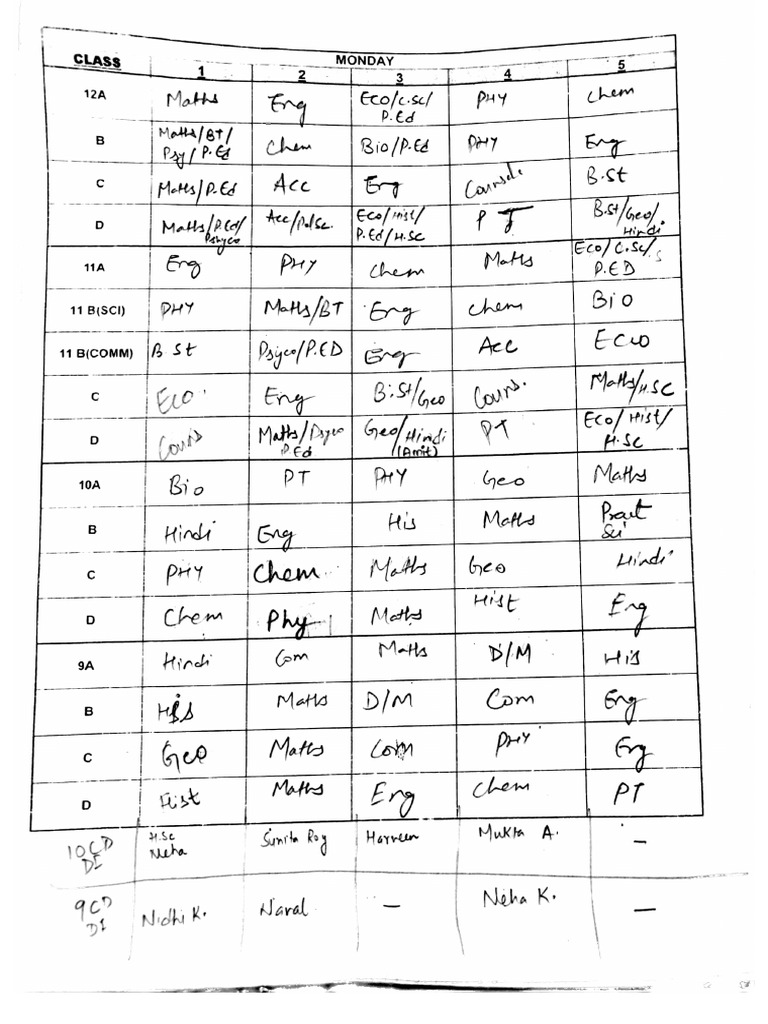 CLASS MONDAY
1 2 3 4 5
12A Maths Eng Eco/C.Sc/ P.Ed PHY Chem
B Maths/BT/ Psy/P.Ed Chem Bio/P.Ed PHY Eng
C Maths/P.Ed Acc Eng B.St
D Maths/P.Ed/ Psyco Acc/Pol Sc. Eco/Hist/ P.Ed/H.SC P T B.St/Geo/ Hindi
11A Eng PHY Chem Maths Eco/C.Sc/ P.ED
11 B(SCI) PHY Maths/BT Eng Chem Bio
11 B(COMM) B St Psyco/P.ED Eng Acc ECO
C Eco. Eng B.St/Geo Couns. Maths/H.SC
D Couns Maths/Psyco P.Ed Geo/Hindi (Amit) PT Eco/Hist/ H.Sc
10A Bio PT PHY Geo Maths
B Hindi Eng His Maths Sci
C PHY Chem Maths Geo Hindi
D Chem Phy Maths Hist Eng
9A Hindi Com Maths D/M His
B His Maths D/M Com Eng
C Geo Maths Com PHY Eng
D Hist Maths Eng Chem PT
10CD DI H.Sc Neha Sunita Roy Harveen Mukta A. –
9CD DI Nidhi K. Naval – Neha K. –